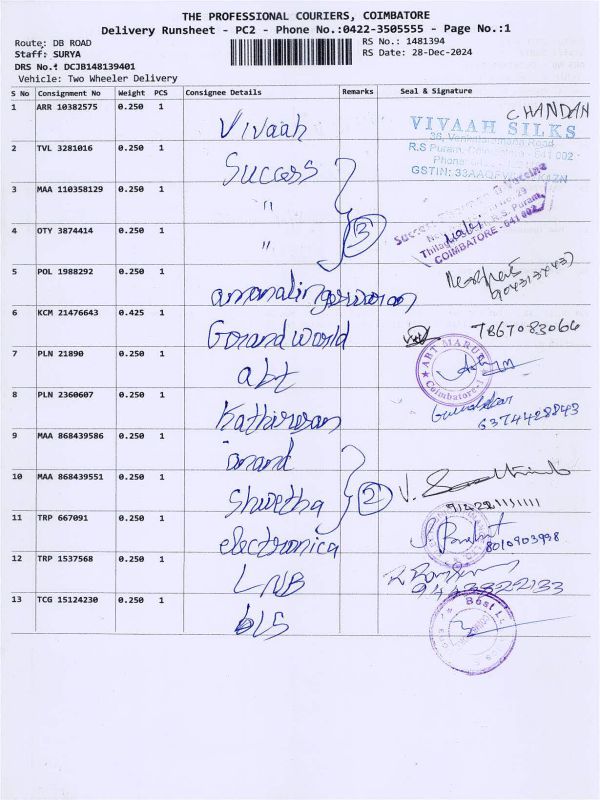 THE PROFESSIONAL COURIERS, COIMBATORE
Delivery Runsheet - PC2 - Phone No.:0422-3505555 - Page No.:1
Route: DB ROAD RS No.: 1481394
Staff: SURYA RS Date: 28-Dec-2024
DRS No.: DCJB148139401
Vehicle: Two Wheeler Delivery
S No Consignment No Weight PCS Consignee Details Remarks Seal & Signature
1 ARR 10382575 0.250 1 Vivaah CHANDAN
VIVAAH SILKS
R.S Puram,
2 TVL 3281016 0.250 1 Success
3 MAA 110358129 0.250 1 "
4 OTY 3874414 0.250 1 " 3
COIMBATORE - 641 002
5 POL 1988292 0.250 1
6 KCM 21476643 0.425 1 Gorand world 7867083066
7 PLN 21890 0.250 1 abt
ABT MARUTI
Coimbatore-1
8 PLN 2360607 0.250 1 Kathirvan
6374428843
9 MAA 868439586 0.250 1 anand
10 MAA 868439551 0.250 1 Shwetha 2
11 TRP 667091 0.250 1 electronica
8010903998
12 TRP 1537568 0.250 1 LNB
9443322133
13 TCG 15124230 0.250 1 bls
Best